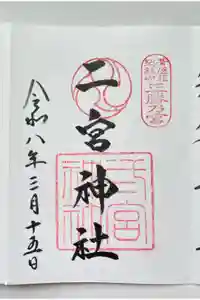 二宮神社
二宮神社
令和八年三月十五日